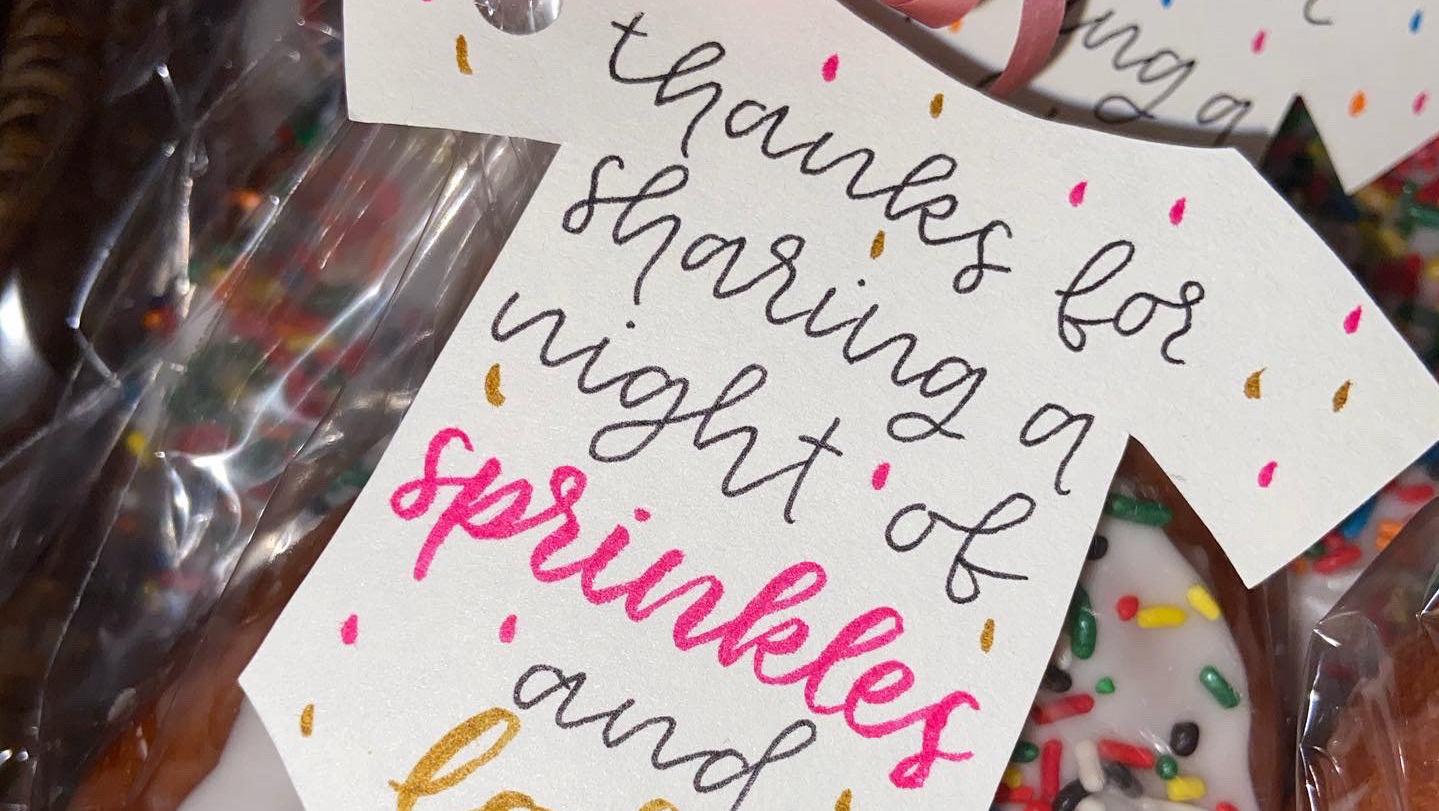 thanks for
sharing a
night of
sprinkles
and